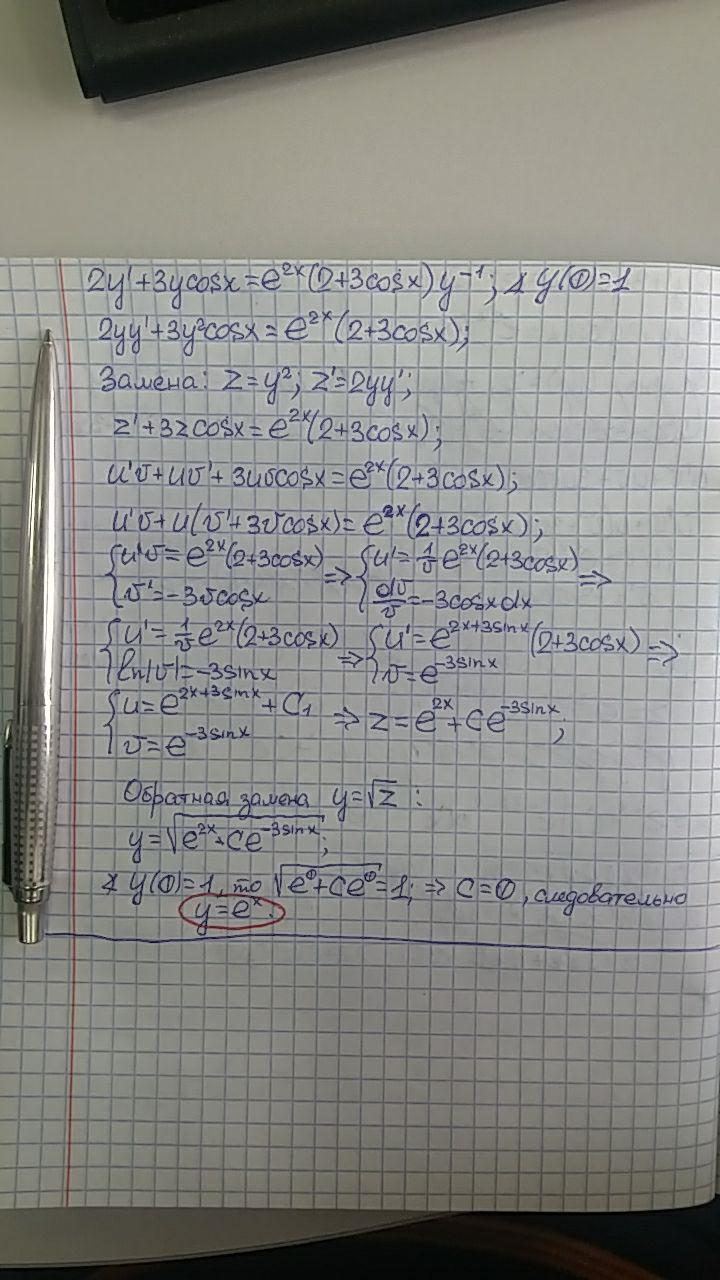 2y'+3ycosx=e^{2x}(2+3cosx)y^{-1}; y(0)=1
2yy'+3y²cosx=e^{2x}(2+3cosx);
Замена: z=y²; z'=2yy';
z'+3zcosx=e^{2x}(2+3cosx);
u'v+uv'+3uvcosx=e^{2x}(2+3cosx);
u'v+u(v'+3vcosx)=e^{2x}(2+3cosx);
{u'v=e^{2x}(2+3cosx) ⇒ {u'=1/v e^{2x}(2+3cosx) ⇒
{v'=-3vcosx {dv/v=-3cosxdx
{u'=1/v e^{2x}(2+3cosx) ⇒ {u'=e^{2x+3sinx}(2+3cosx) ⇒
{ln|v|=-3sinx {v=e^{-3sinx}
{u=e^{2x+3sinx}+C₁ ⇒ z=e^{2x}+Ce^{-3sinx};
{v=e^{-3sinx}
Обратная замена y=√z :
y=√(e^{2x}+Ce^{-3sinx});
y(0)=1, то √(e⁰+Ce⁰)=1; ⇒ C=0, следовательно
y=e^x.